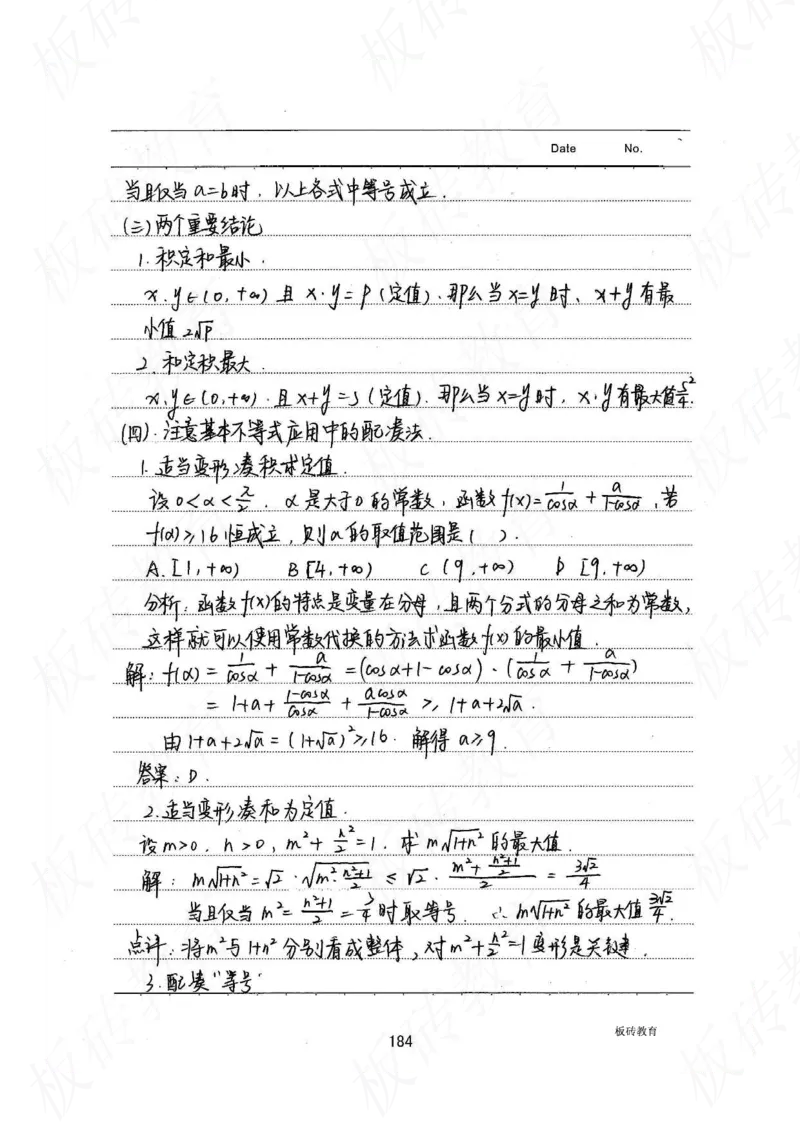 Date No.
当且仅当 a=b时，以上各式中等号成立．
(三)两个重要结论
1. 积定和最小．
x．y∈(0，+∞) 且 x·y=P (定值)．那么当 x=y 时，x+y 有最
小值 2√P
2．和定积最大
x．y∈(0，+∞)．且 x+y=s (定值)．那么当 x=y 时，x·y 有最大值 s²/4．
(四)．注意基本不等式应用中的配凑法．
1．适当变形凑积求定值．
设 0<α<π/2．α 是大于0的常数，函数 f(x)=1/cosα + a/(1-cosα)，若
f(α)≥16恒成立，则a的取值范围是( )．
A.[1，+∞) B [4，+∞) C (9，+∞) D [9，+∞)
分析：函数f(x)的特点是变量在分母，且两个分式的分母之和为常数，
这样就可以使用常数代换的方法求函数f(x)的最小值．
解：f(α) = 1/cosα + a/(1-cosα) = (cosα+1-cosα)·(1/cosα + a/(1-cosα))
= 1+a+ (1-cosα)/cosα + acosα/(1-cosα) ≥ 1+a+2√a．
由 1+a+2√a = (1+√a)²≥16．解得 a≥9．
答案：D．
2．适当变形凑和为定值．
设 m>0．n>0，m²+ n²/2=1．求 m√(1+n²) 的最大值．
解：m√(1+n²) = √2·√(m²·(n²+1)/2) ≤ √2·(m²+(n²+1)/2)/2 = 3√2/4
当且仅当 m²= (n²+1)/2 = 3/4 时取等号．∴ m√(1+n²) 的最大值 3√2/4．
点评：将m²与1+n²分别看成整体，对m²+n²/2=1变形是关键．
3．配凑"等号"
184
板砖教育